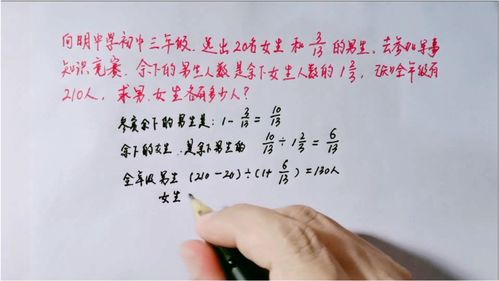 向明中学初中三年级,选出20名女生和 3/13 的男生,去参加军事
知识竞赛,余下的男生人数是余下女生人数的 1 2/3,已知全年级有
210人,求男、女生各有多少人?
参赛余下的男生是: 1 - 3/13 = 10/13
余下的女生,是余下男生的 10/13 ÷ 1 2/3 = 6/13
全年级男生 (210-20) ÷ (1+ 6/13) = 130人
女生